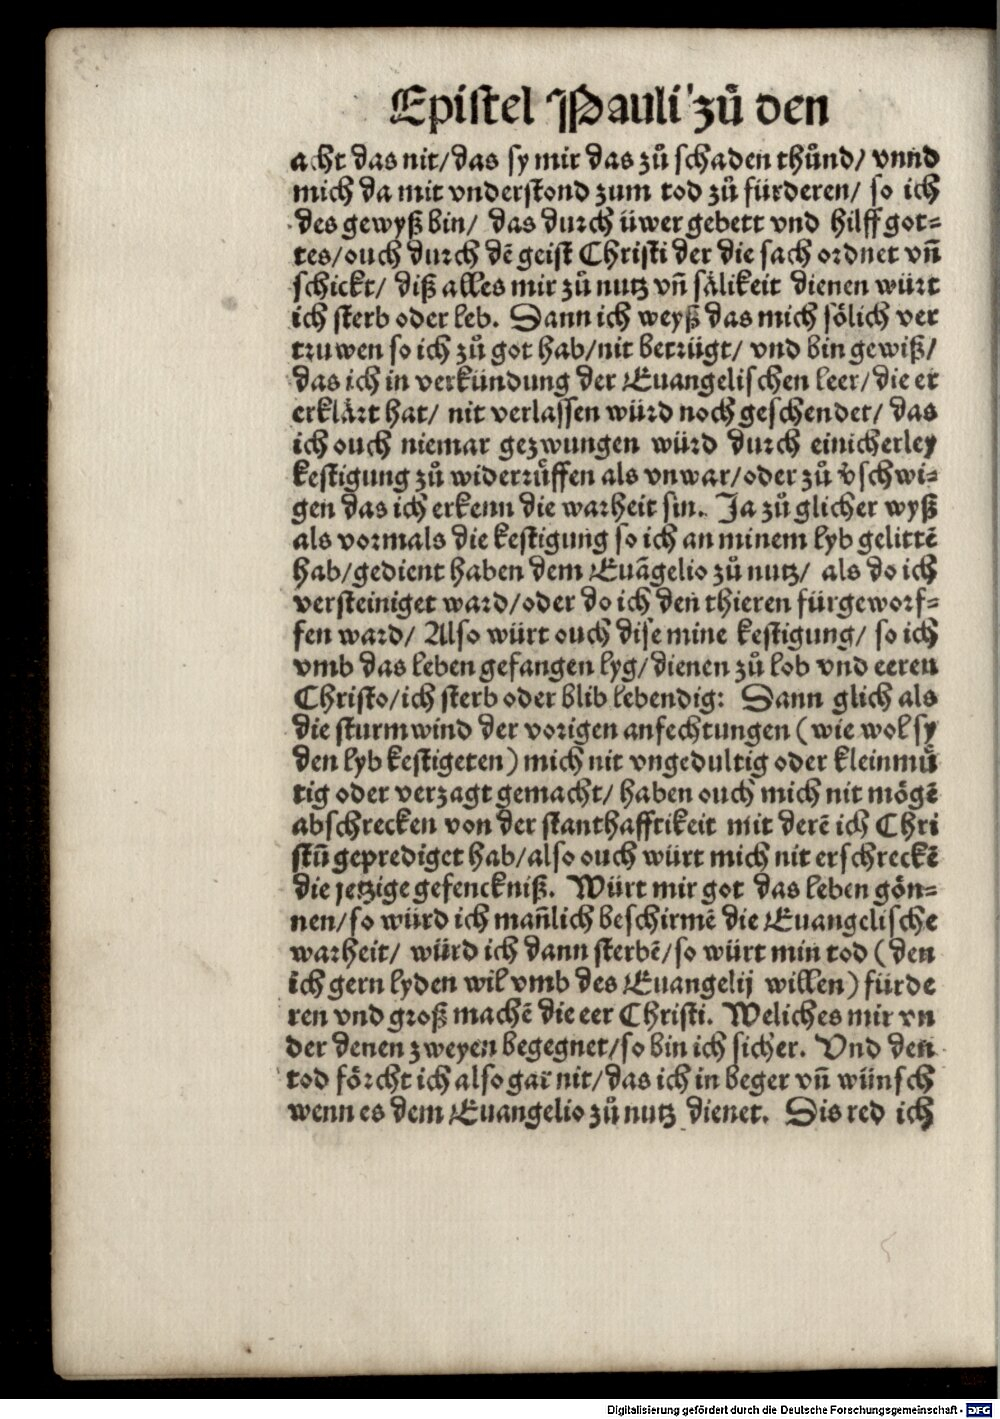 Epistel Pauli zů den
acht das nit/das sy mir das zů schaden thůnd/ vnnd
mich da mit vnderstond zum tod zů fürderen/ so ich
des gewyß bin/ das durch üwer gebett vnd hilff got=
tes/ouch durch dē geist Christi der die sach ordnet vñ
schickt/ diß alles mir zů nutz vñ sälikeit dienen würt
ich sterb oder leb. Dann ich weyß das mich sölich ver
truwen so ich zů got hab/nit betrügt/ vnd bin gewiß/
das ich in verkündung der Euangelischen leer/die er
erklärt hat/ nit verlassen würd noch geschendet/ das
ich ouch niemar gezwungen würd durch einicherley
kestigung zů widerrůffen als vnwar/oder zů v̄schwi=
gen das ich erkenn die warheit sin. Ja zů glicher wyß
als vormals die kestigung so ich an minem lyb gelittē
hab/gedient haben dem Euāgelio zů nutz/ als do ich
versteiniget ward/oder do ich den thieren fürgeworf=
fen ward/ Also würt ouch dise mine kestigung/ so ich
vmb das leben gefangen lyg/dienen zů lob vnd eeren
Christo/ich sterb oder blib lebendig: Dann glich als
die sturmwind der vorigen anfechtungen (wie wol sy
den lyb kestigeten) mich nit vngedultig oder kleinmů
tig oder verzagt gemacht/ haben ouch mich nit mögē
abschrecken von der stanthafftikeit mit derē ich Chri
stū geprediget hab/also ouch würt mich nit erschreckē
die jetzige gefenckniß. Würt mir got das leben gön=
nen/so würd ich mañlich beschirmē die Euangelische
warheit/ würd ich dann sterbē/so würt min tod (den
ich gern lyden wil vmb des Euangelij willen) fürde
ren vnd groß machē die eer Christi. Weliches mir vn
der denen zweyen begegnet/so bin ich sicher. Vnd den
tod förcht ich also gar nit/das ich in beger vñ wünsch
wenn es dem Euangelio zů nutz dienet. Dis red ich
Digitalisierung gefördert durch die Deutsche Forschungsgemeinschaft - DFG